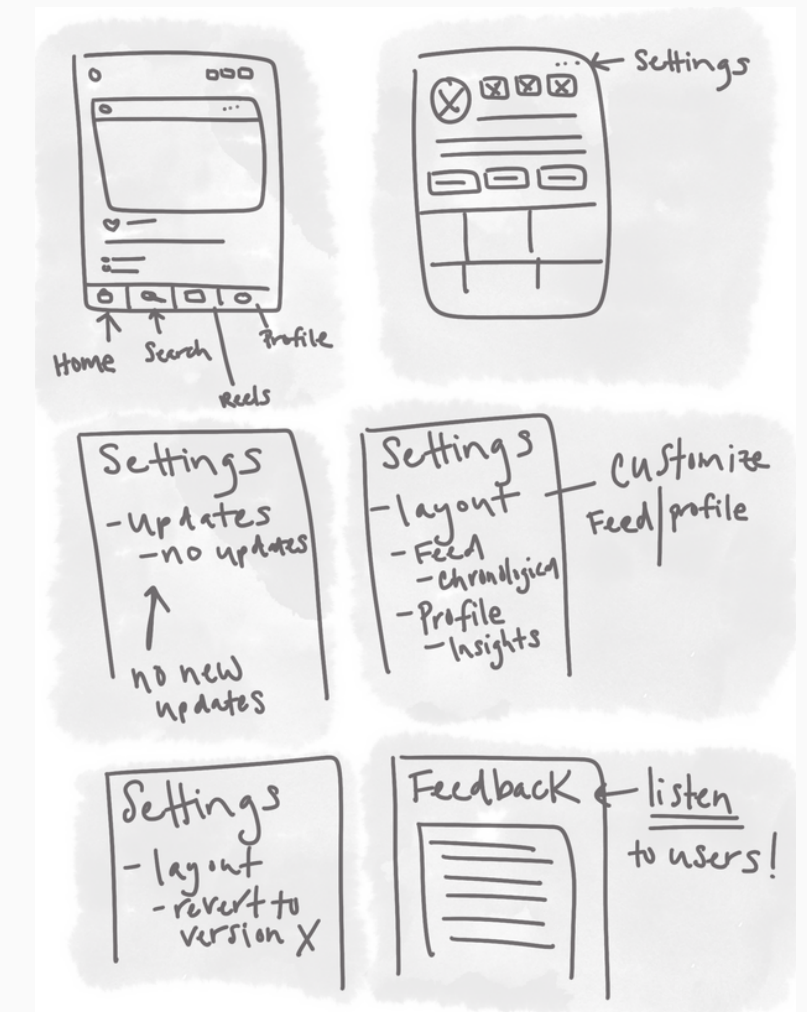 Settings
Home
Search
Reels
Profile
Settings
- updates
- no updates
no new
updates
Settings
- layout
- Feed
- chronological
- Profile
- Insights
customize
Feed/profile
Settings
- layout
- revert to
version X
Feedback
listen
to users!